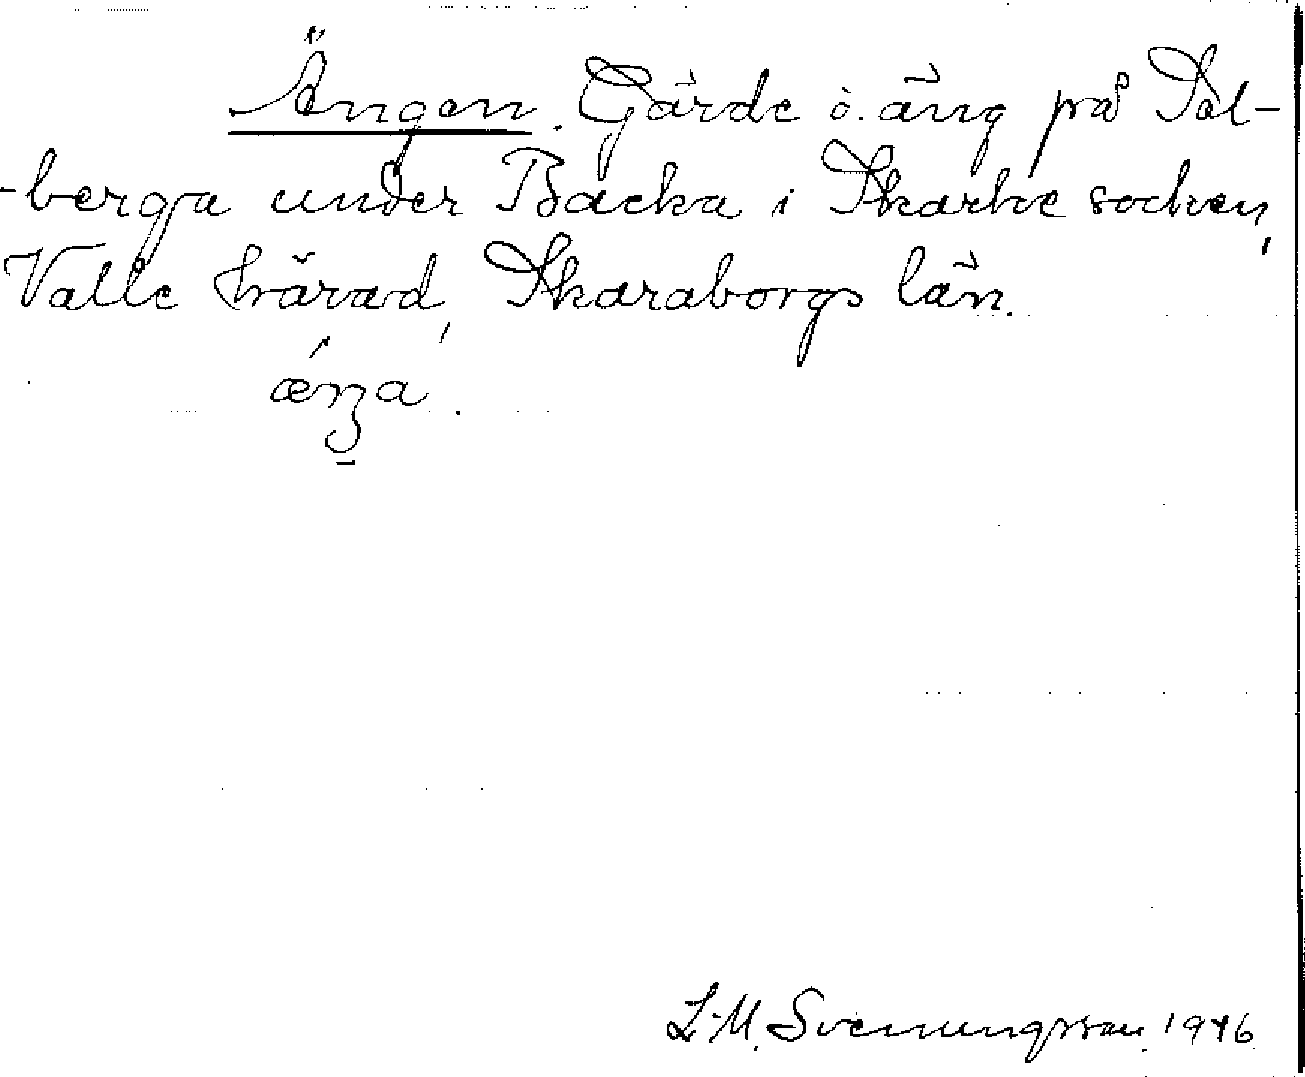 Ängen. Gärde o. äng på Sol-
-berga under Backa i Skarke socken,
Valle härad, Skaraborgs län.
L-M. Svenungsson 1946